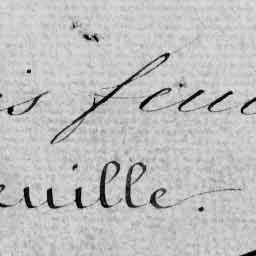 is feui
euille.